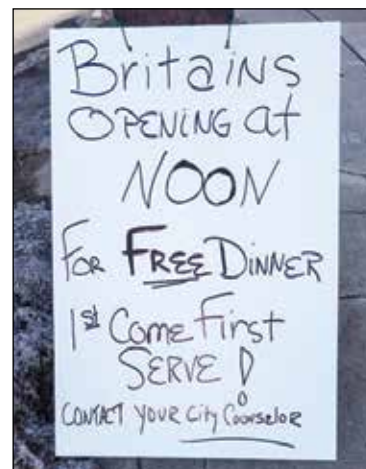 Britains
OPENING at
NOON
FOR FREE DINNER
1st Come First
SERVE!
CONTACT YOUR City Counselor